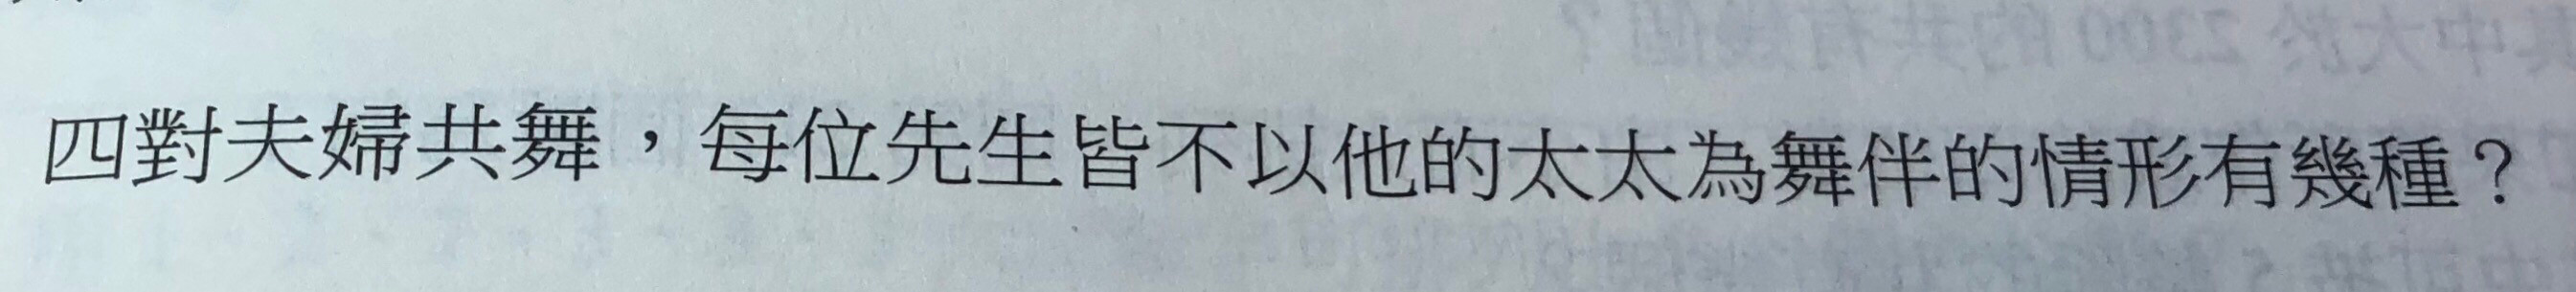 四對夫婦共舞，每位先生皆不以他的太太為舞伴的情形有幾種？